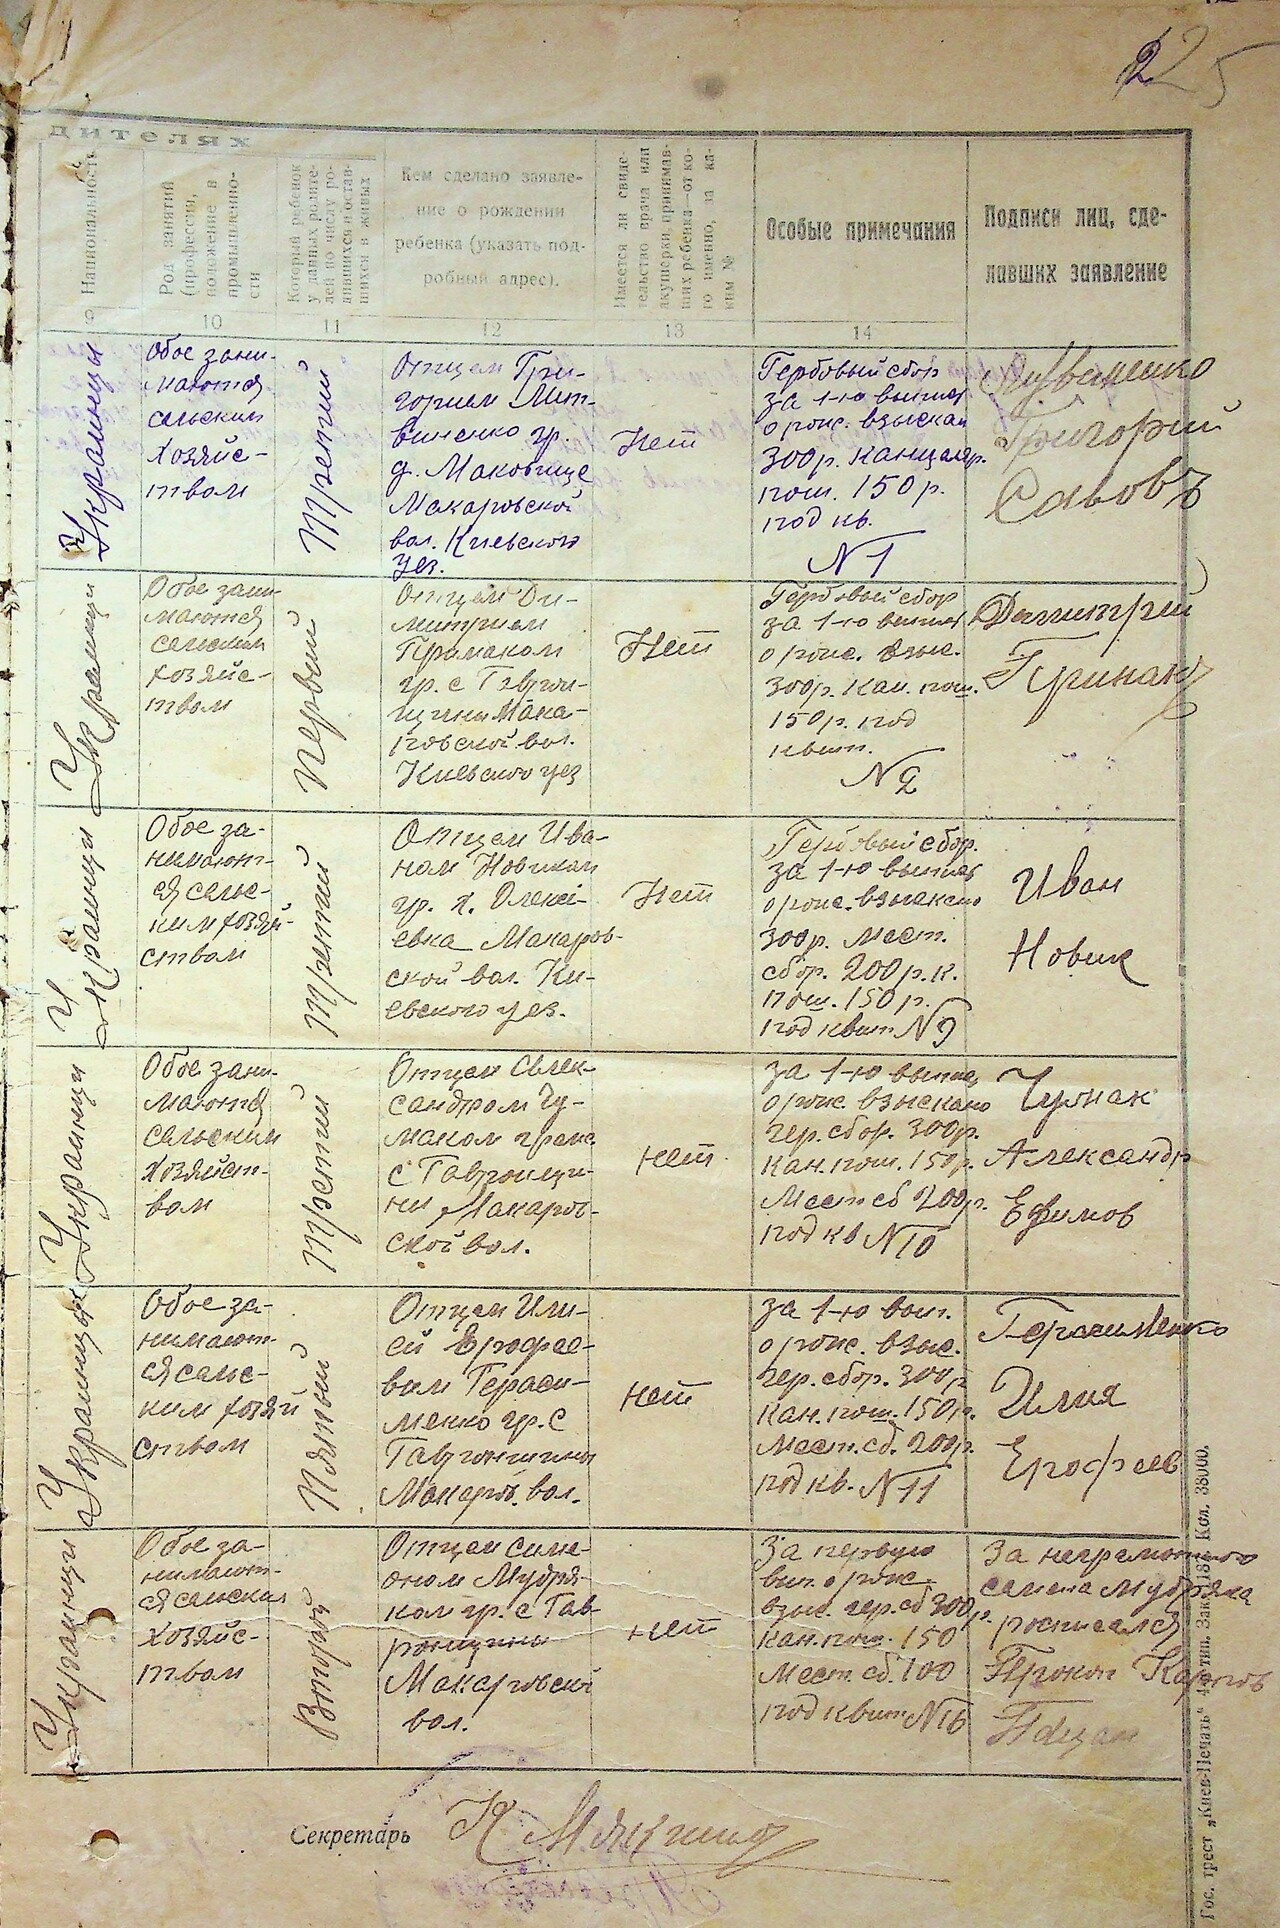 25
дителях
9 Национальность
Род занятий
(профессия,
положение в
промышленно-
сти
10
Который ребенок
у данных родите-
лей по числу ро-
дившихся и остав-
шихся в живых
11
Кем сделано заявле-
ние о рождении
ребенка (указать под-
робный адрес).
12
Имеется ли свиде-
тельство врача или
акушерки, принимав-
ших ребенка—от ко-
го именно, за ка-
ким №
13
Особые примечания
14
Подписи лиц, сде-
лавших заявление
Украинцы
Обое зани-
маются
сельским
хозяйс-
твом
Третий
Отцем Гри-
горием Лит-
виненко гр.
д. Маковище
Макаровской
вол. Киевского
уез.
Нет
Гербовый сбор
за 1-ю выпис
о рож. взыскан
300р. канцеляр.
пош. 150 р.
под кв.
N 1
Григорий
Украинци
Обое зани-
маются
сельским
хозяйс-
твом
Первый
Отцем Ди-
митрием
гр. с Гавron-
щини Мака-
ровской вол.
Киевского уез
Нет
Гербовый сбор
за 1-ю выпис
о рож. взыс.
300р. кан. пош.
150 р. под
квит.
N 2
Дмитрий
Украинци
Обое за-
нимают-
ся сельс-
ким хозяй-
ством
Третий
Отцем Ива-
ном Новиком
гр. х. Олексі-
евка Макаров-
ской вол. Ки-
евского уез.
Нет
Гербовый сбор.
за 1-ю выпис
о рож. взыскано
300р. мест.
сбор. 200 р. к.
пош. 150 р.
под квит N 9
Иван
Новик
Украинци
Обое зани-
маются
сельским
хозяйст-
вом
Третий
Отцем Олек-
сандром Чу-
маком граж.
с Гавронщи-
ни Макаров-
ской вол.
нет
за 1-ю выпис
о рож. взыскано
гер. сбор. 300р.
кан. пош. 150 р.
Мест сб 200р.
под кв N 10
Чумак
Александр
Ефимов
Украинцы
Обое за-
нимают-
ся сельс-
ким хозяй
ством
Пятый
Отцем Или-
ей Ерофее-
вим Гераси-
менко гр. с
Гавронщины
Макаров. вол.
нет
за 1-ю вып.
о рож. взыс.
гер. сбор. 300р
кан. пош. 150 р.
Мест. сб. 200р.
под кв. N 11
Герасименко
Илия
Ерофеев
Украинци
Обое за-
нимают-
ся сельским
хозяйс-
твом
Второй
Отцем Симе-
оном Мудря-
ком гр. с Гав-
ронщини
Макаровской
вол.
нет
За первую
вып. о рож.
взыс. гер. сб 300 р.
кан. пош. 150
Мест. сб. 100
под квит N 16
За неграмотного
Семена Мудряка
росписался
Прокоп Карпов
Пацан
Секретарь
Гос. трест „Киев-Печать“ Кол. 38000.